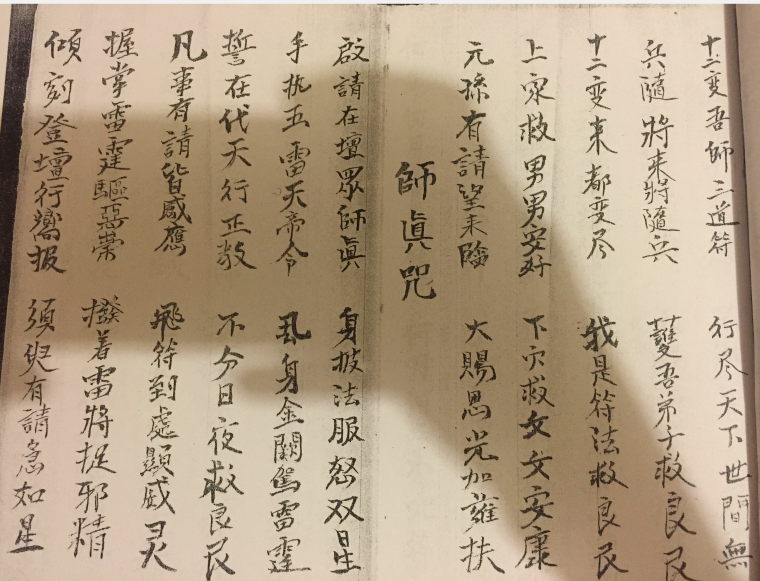 十二变吾師三道符 行尽天下世間無
兵隨將来將隨兵 護吾弟子救良民
十二变来都变尽 我是符法救良民
上家救男男安好 下穴救女女安康
元孫有請望来臨 大賜恩光加擁扶
師眞咒
啟請在壇眾師眞 身披法服怒双星
手执五雷天帝令 身金闕駕雷霆
誓在代天行正教 不分日夜救良民
凡事有請皆感應 飛符到處顯威灵
握掌雷霆驅惡 撥着雷將捉邪精
傾刻登壇行 报 須臾有請急如星